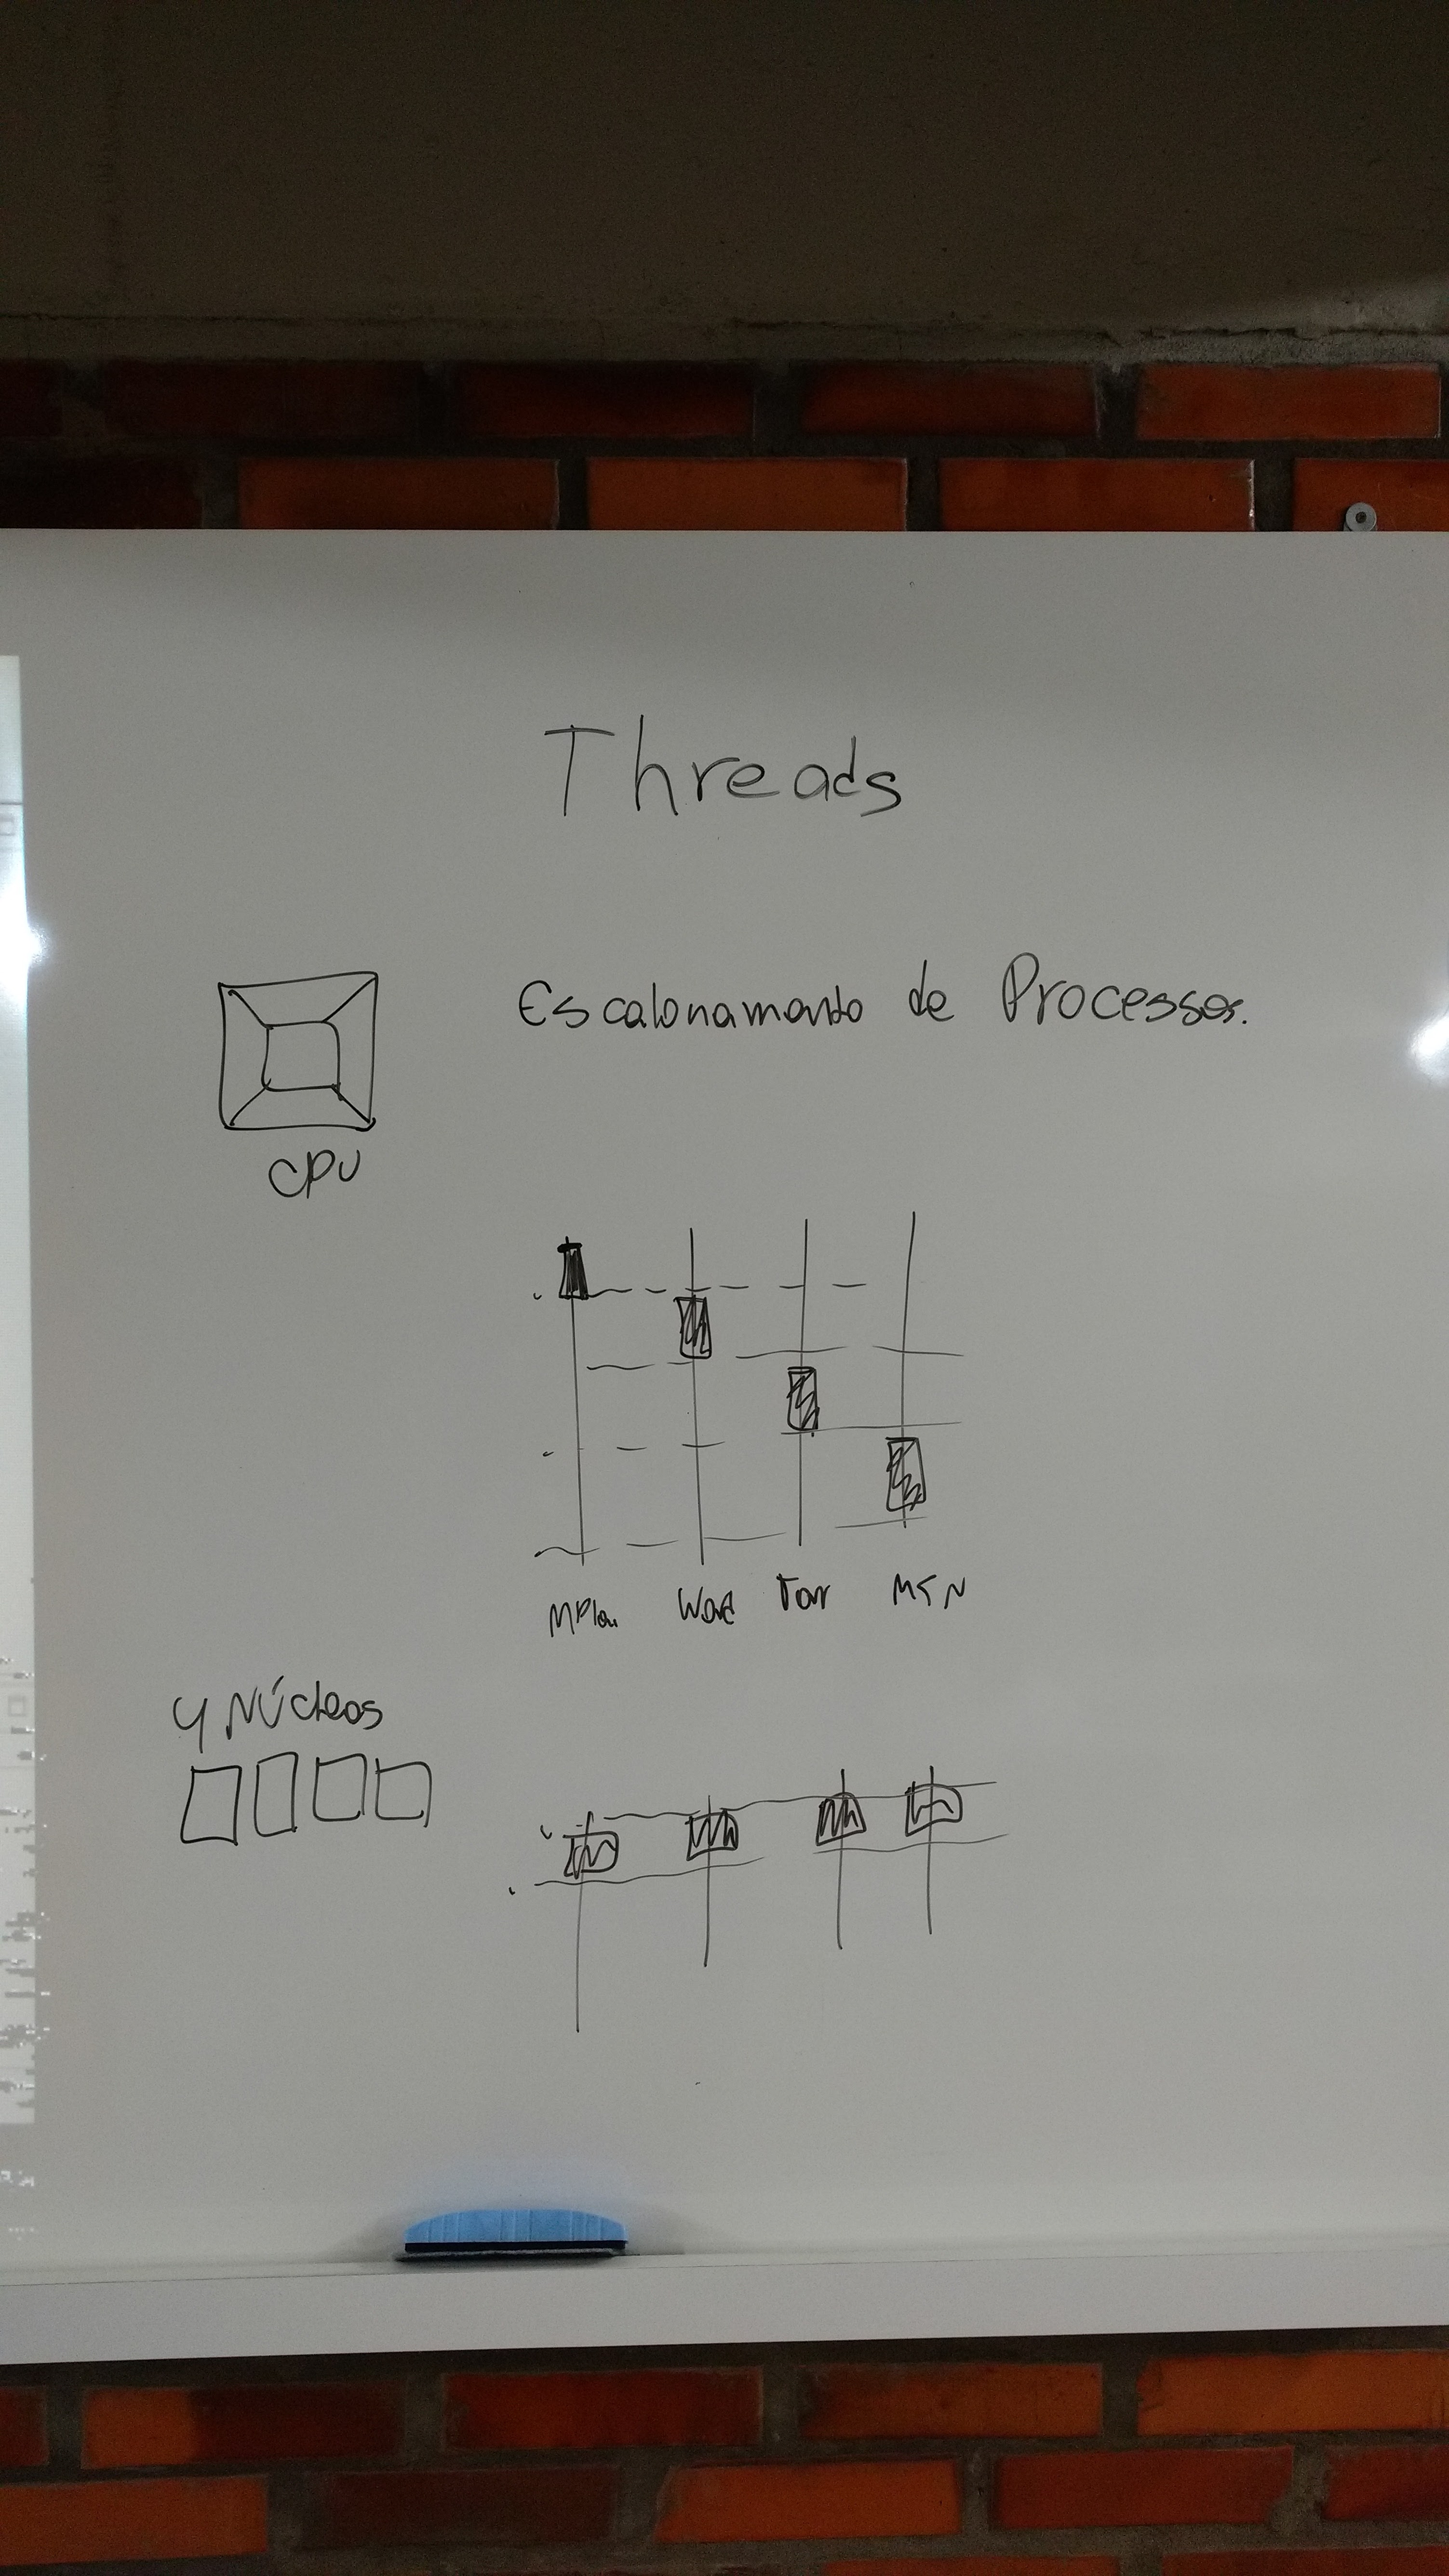 Threads
Escalonamento de Processos.
CPU
MPlay Word MSN
4 Núcleos